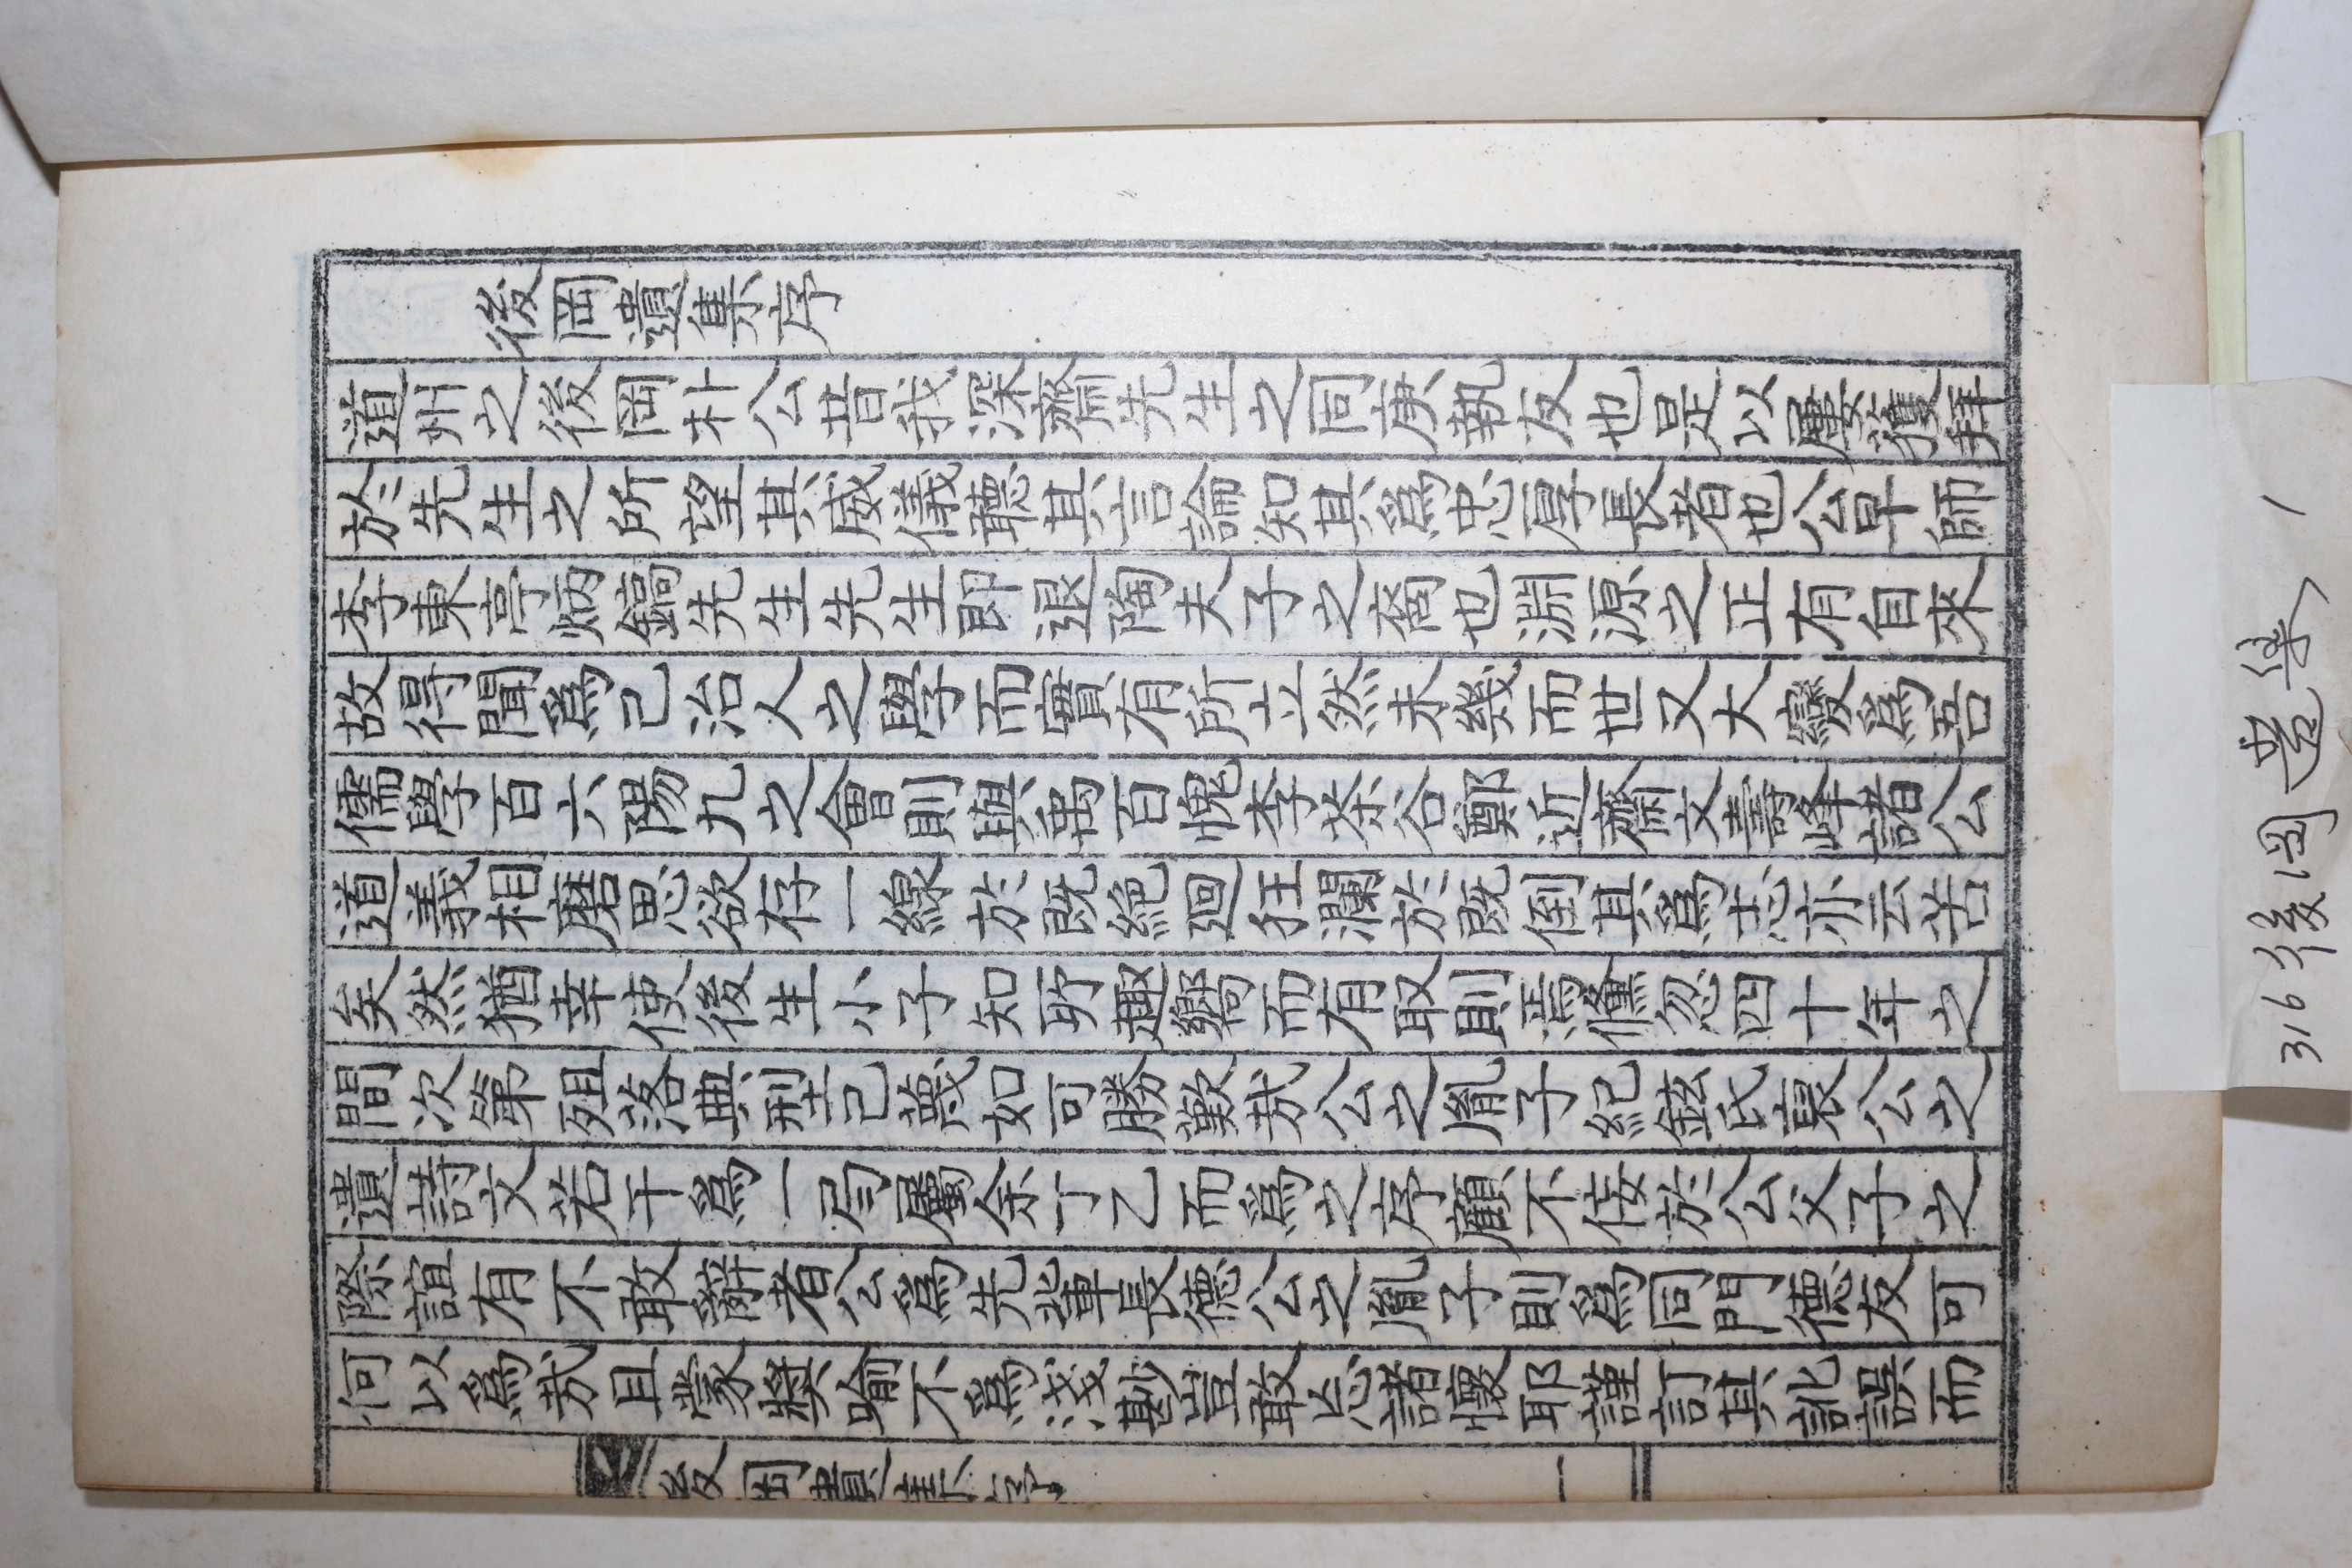 後岡遺集序
道州之後岡朴公昔我深齋先生之同庚執友也是以屢獲拜
於先生之所望其威儀聽其言論知其爲忠厚長者也公早師
李東亭炳鎬先生先生即退陶夫子之裔也淵源之正有自來
故得聞爲己治人之學而實有所立然未幾而世又大變爲吾
儒學百六陽九之會則與禹百愧李茶谷鄭近齋文壽峰諸公
道義相磨思欲存一線於既絶迴狂瀾於既倒其爲志亦云苦
矣然猶幸使後生小子知所趣嚮而有取則焉儵忽四十年之
間次第殂落典型已蔑如可勝歎哉公之胤子紀鉉氏裒公之
遺詩文若干爲一局屬余丁乙而爲之序顧不佞於公父子之
際誼有不敢辭者公爲先輩長德公之胤子則爲同門德友可
何以爲哉且蒙奬喻不爲淺尠豈敢忘諸懷耶謹訂其訛誤而
後岡遺集序
一
316 後岡遺集 1